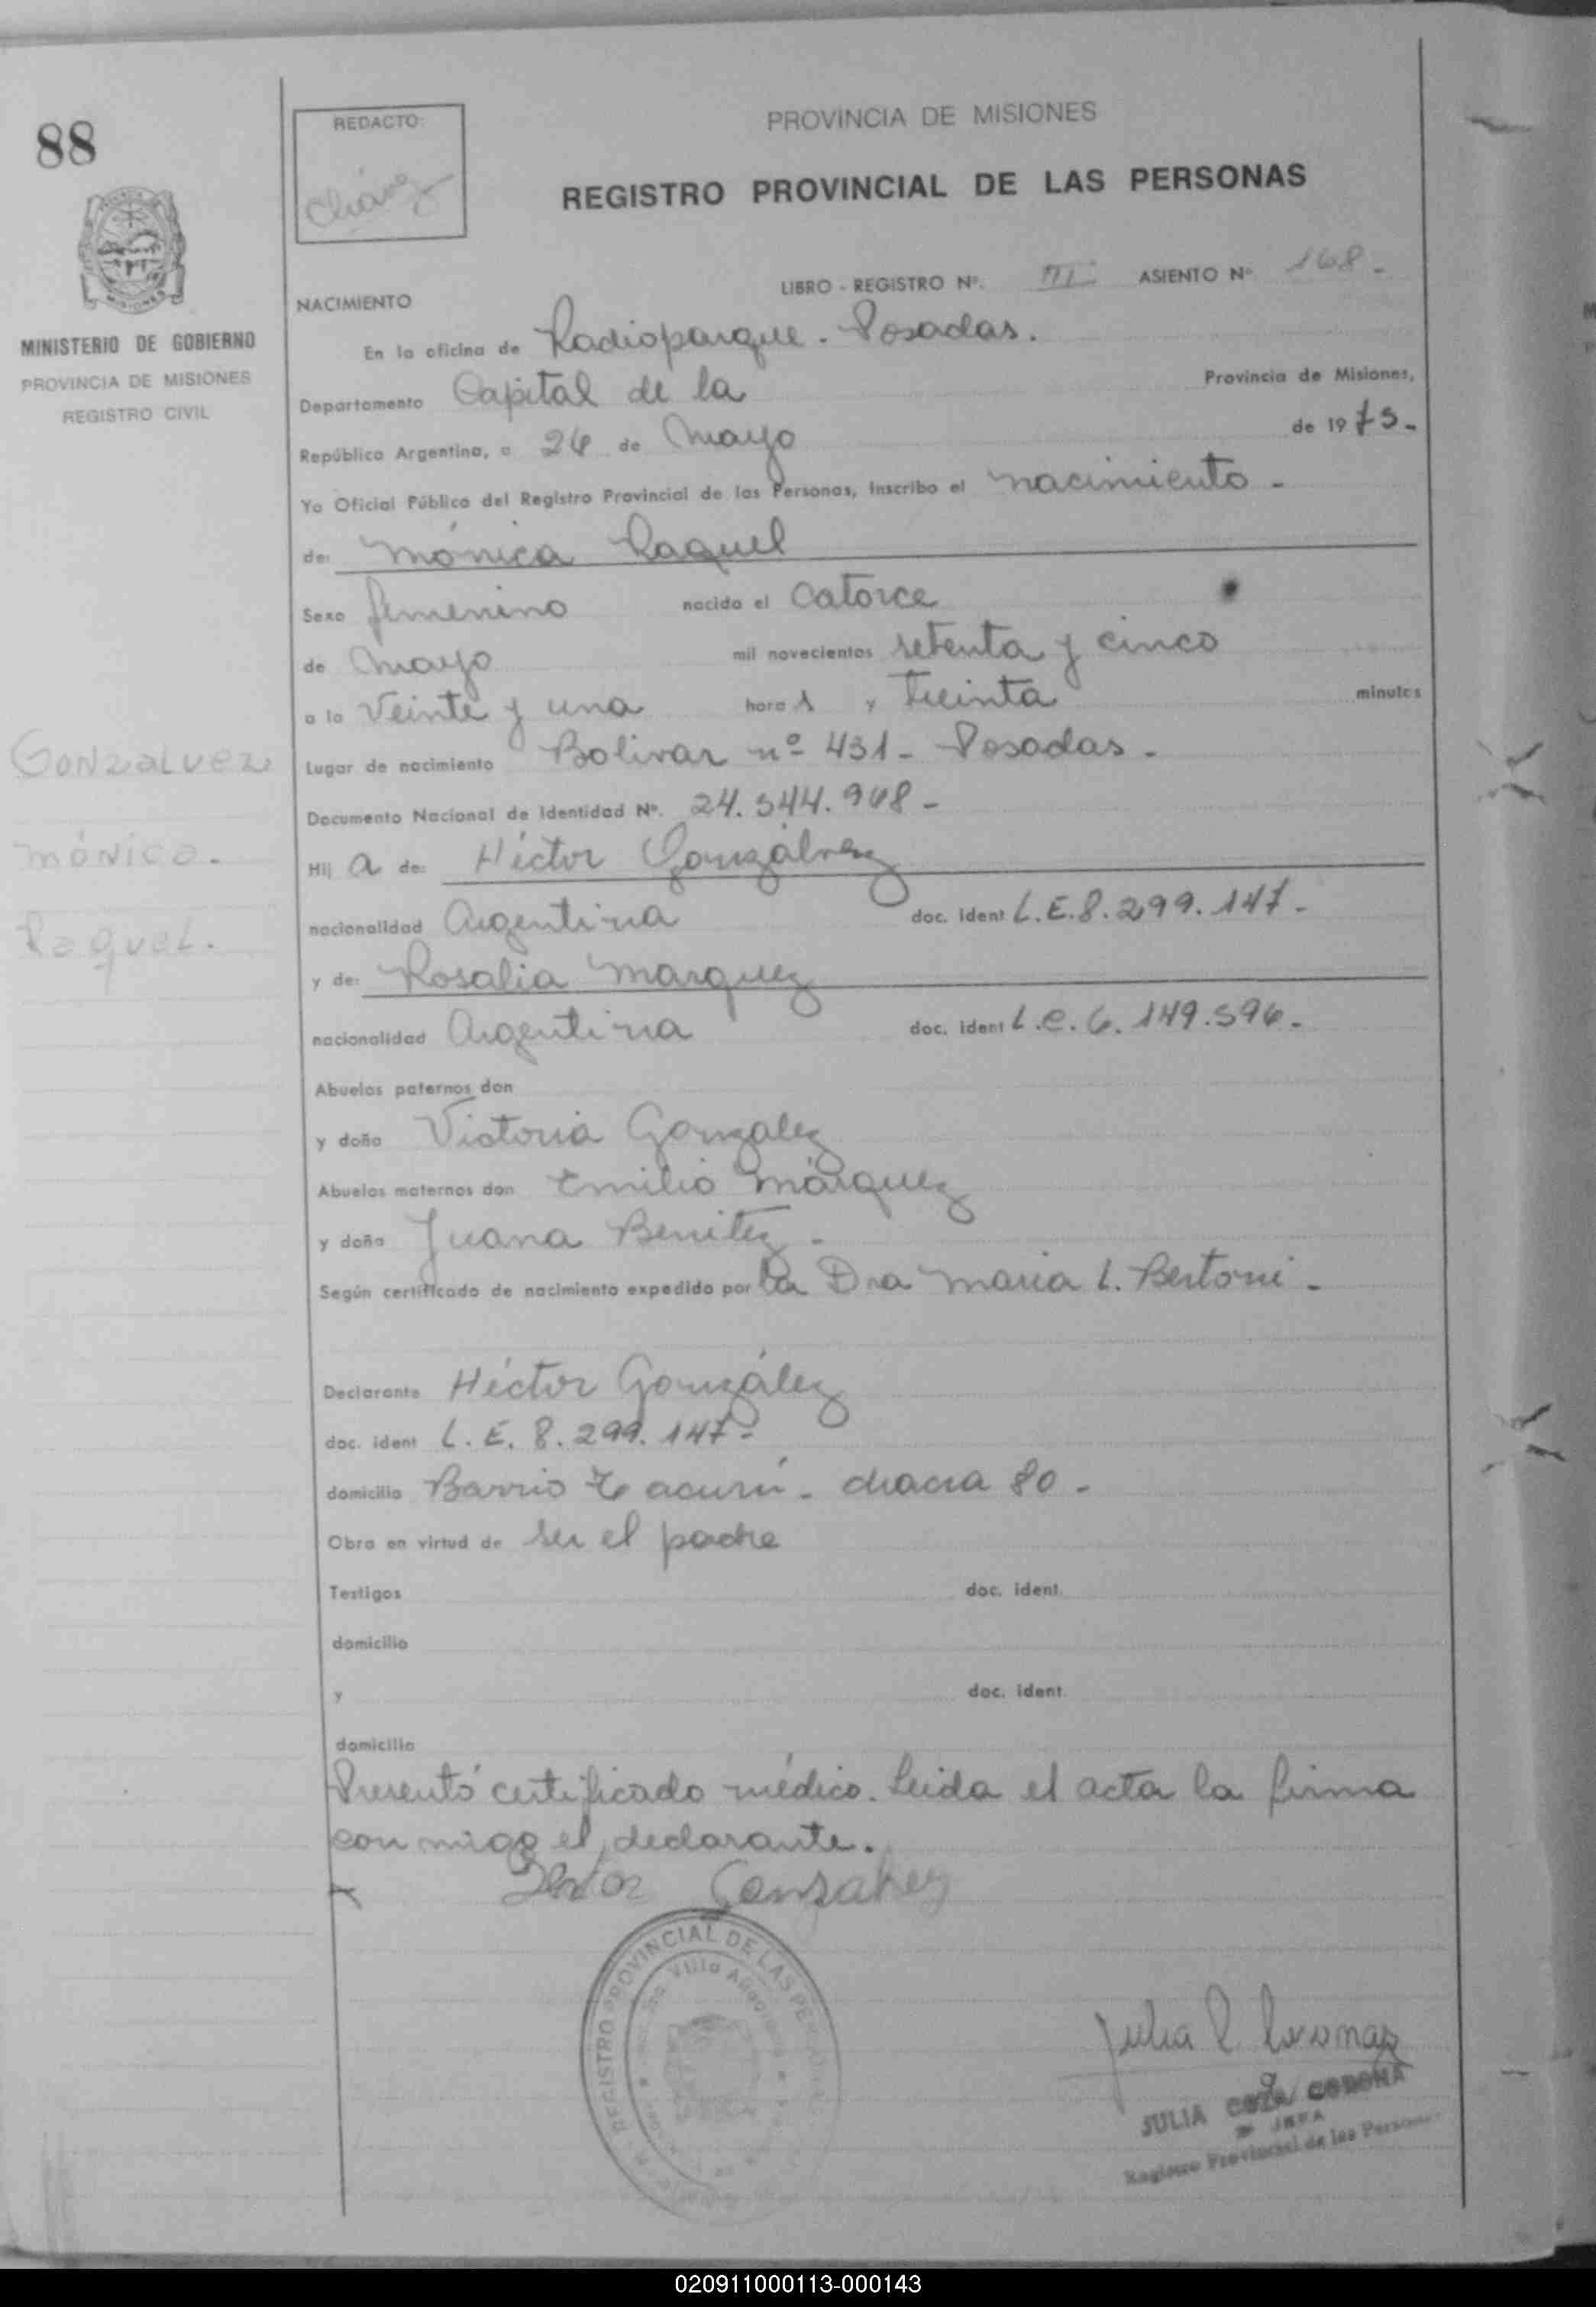 88
REDACTO:
Chávez
PROVINCIA DE MISIONES
REGISTRO PROVINCIAL DE LAS PERSONAS
MISIONES
MINISTERIO DE GOBIERNO
PROVINCIA DE MISIONES
REGISTRO CIVIL
LIBRO - REGISTRO Nº. III ASIENTO Nº 168 -
NACIMIENTO
En la oficina de Radioparque - Posadas.
Departamento Capital de la Provincia de Misiones,
República Argentina, a 26 de Mayo de 1975 -
Yo Oficial Público del Registro Provincial de las Personas, inscribo el nacimiento -
de: Mónica Raquel
Sexo femenino nacido el Catorce
de Mayo mil novecientos setenta y cinco
a la Veinte y una hora s y Treinta minutos
Gonzalvez
Lugar de nacimiento Bolivar nº 431 - Posadas -
Documento Nacional de Identidad Nº. 24.544.968 -
Mónica.
Hij a de: Héctor Gonzálvez
Raquel.
nacionalidad Argentina doc. ident L.E. 8.299.147 -
y de: Rosalia Marquez
nacionalidad Argentina doc. ident L.C. 6.149.596 -
Abuelos paternos don
y doña Victoria Gonzalez
Abuelos maternos don Emilio Márquez
y doña Juana Benitez -
Según certificado de nacimiento expedido por la Dra Maria L. Bertoni -
Declarante Héctor González
doc. ident L. E. 8.299.147 -
domicilio Barrio Tacurú - chacra 80 -
Obra en virtud de ser el padre
Testigos doc. ident.
domicilio
y doc. ident.
domicilio
Presentó certificado médico. Leida el acta la firma
con migo el declarante.
Gonzalvez
REGISTRO PROVINCIAL DE LAS PERSONAS
Villa
Julia
JULIA CORONA
JEFA
Registro Provincial de las Personas
020911000113-000143